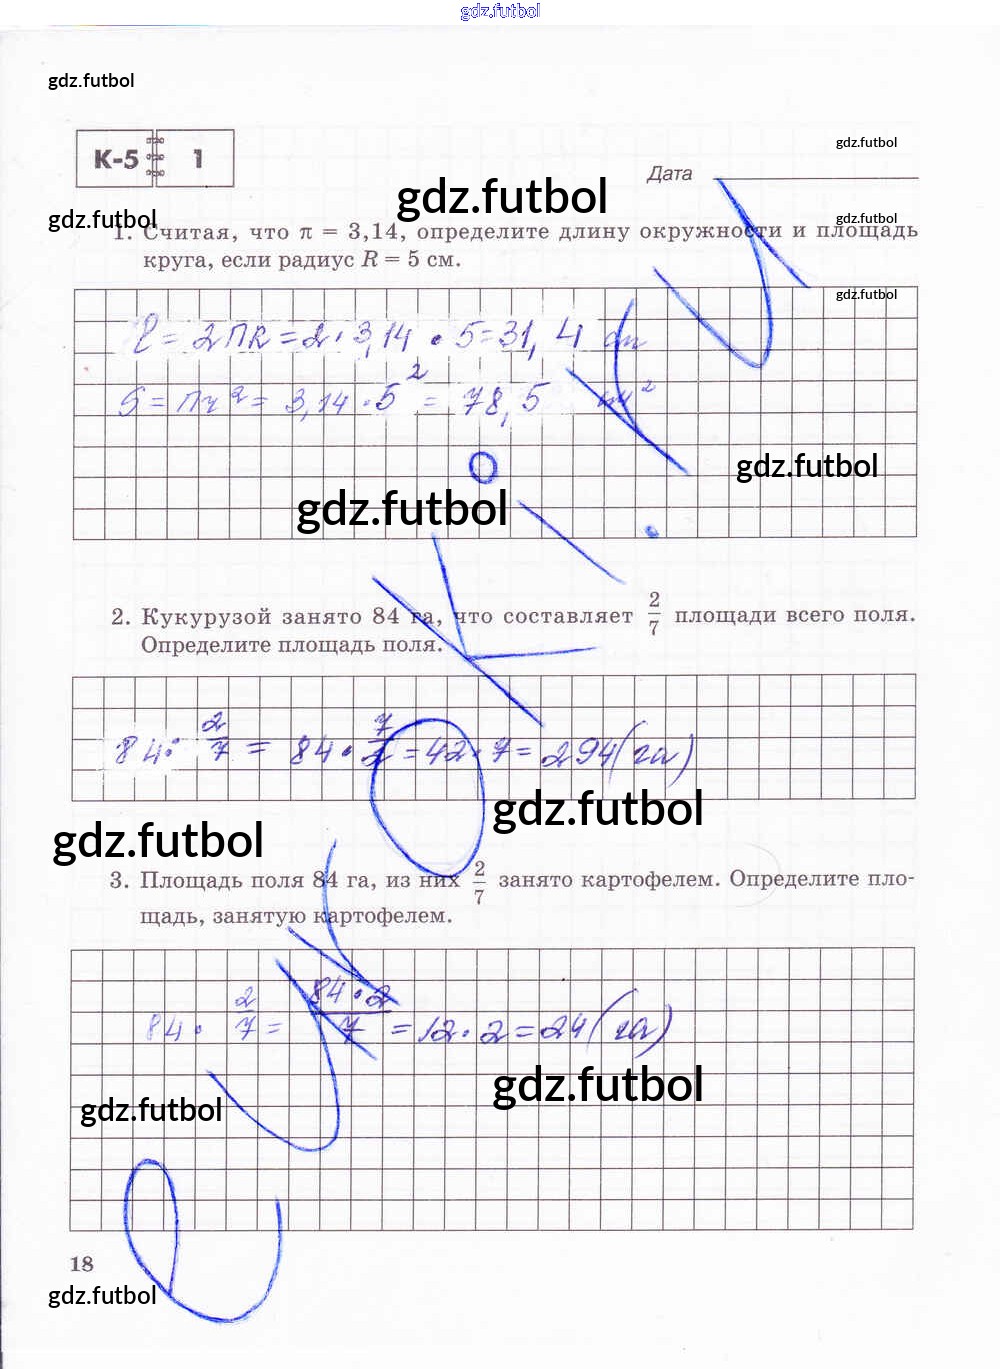 gdz.futbol
gdz.futbol
К-5 1
gdz.futbol
Дата
gdz.futbol
gdz.futbol
gdz.futbol
1. Считая, что π = 3,14, определите длину окружности и площадь
круга, если радиус R = 5 см.
gdz.futbol
ℓ = 2ПR = 2 · 3,14 · 5 = 31,4 см
S = Пr² = 3,14 · 5² = 78,5 см²
gdz.futbol
gdz.futbol
2. Кукурузой занято 84 га, что составляет 2/7 площади всего поля.
Определите площадь поля.
84 : 2/7 = 84 · 7/2 = 42 · 7 = 294 (га)
gdz.futbol
gdz.futbol
3. Площадь поля 84 га, из них 2/7 занято картофелем. Определите пло-
щадь, занятую картофелем.
84 · 2/7 = 84 · 2/7 = 12 · 2 = 24 (га)
gdz.futbol
gdz.futbol
18
gdz.futbol